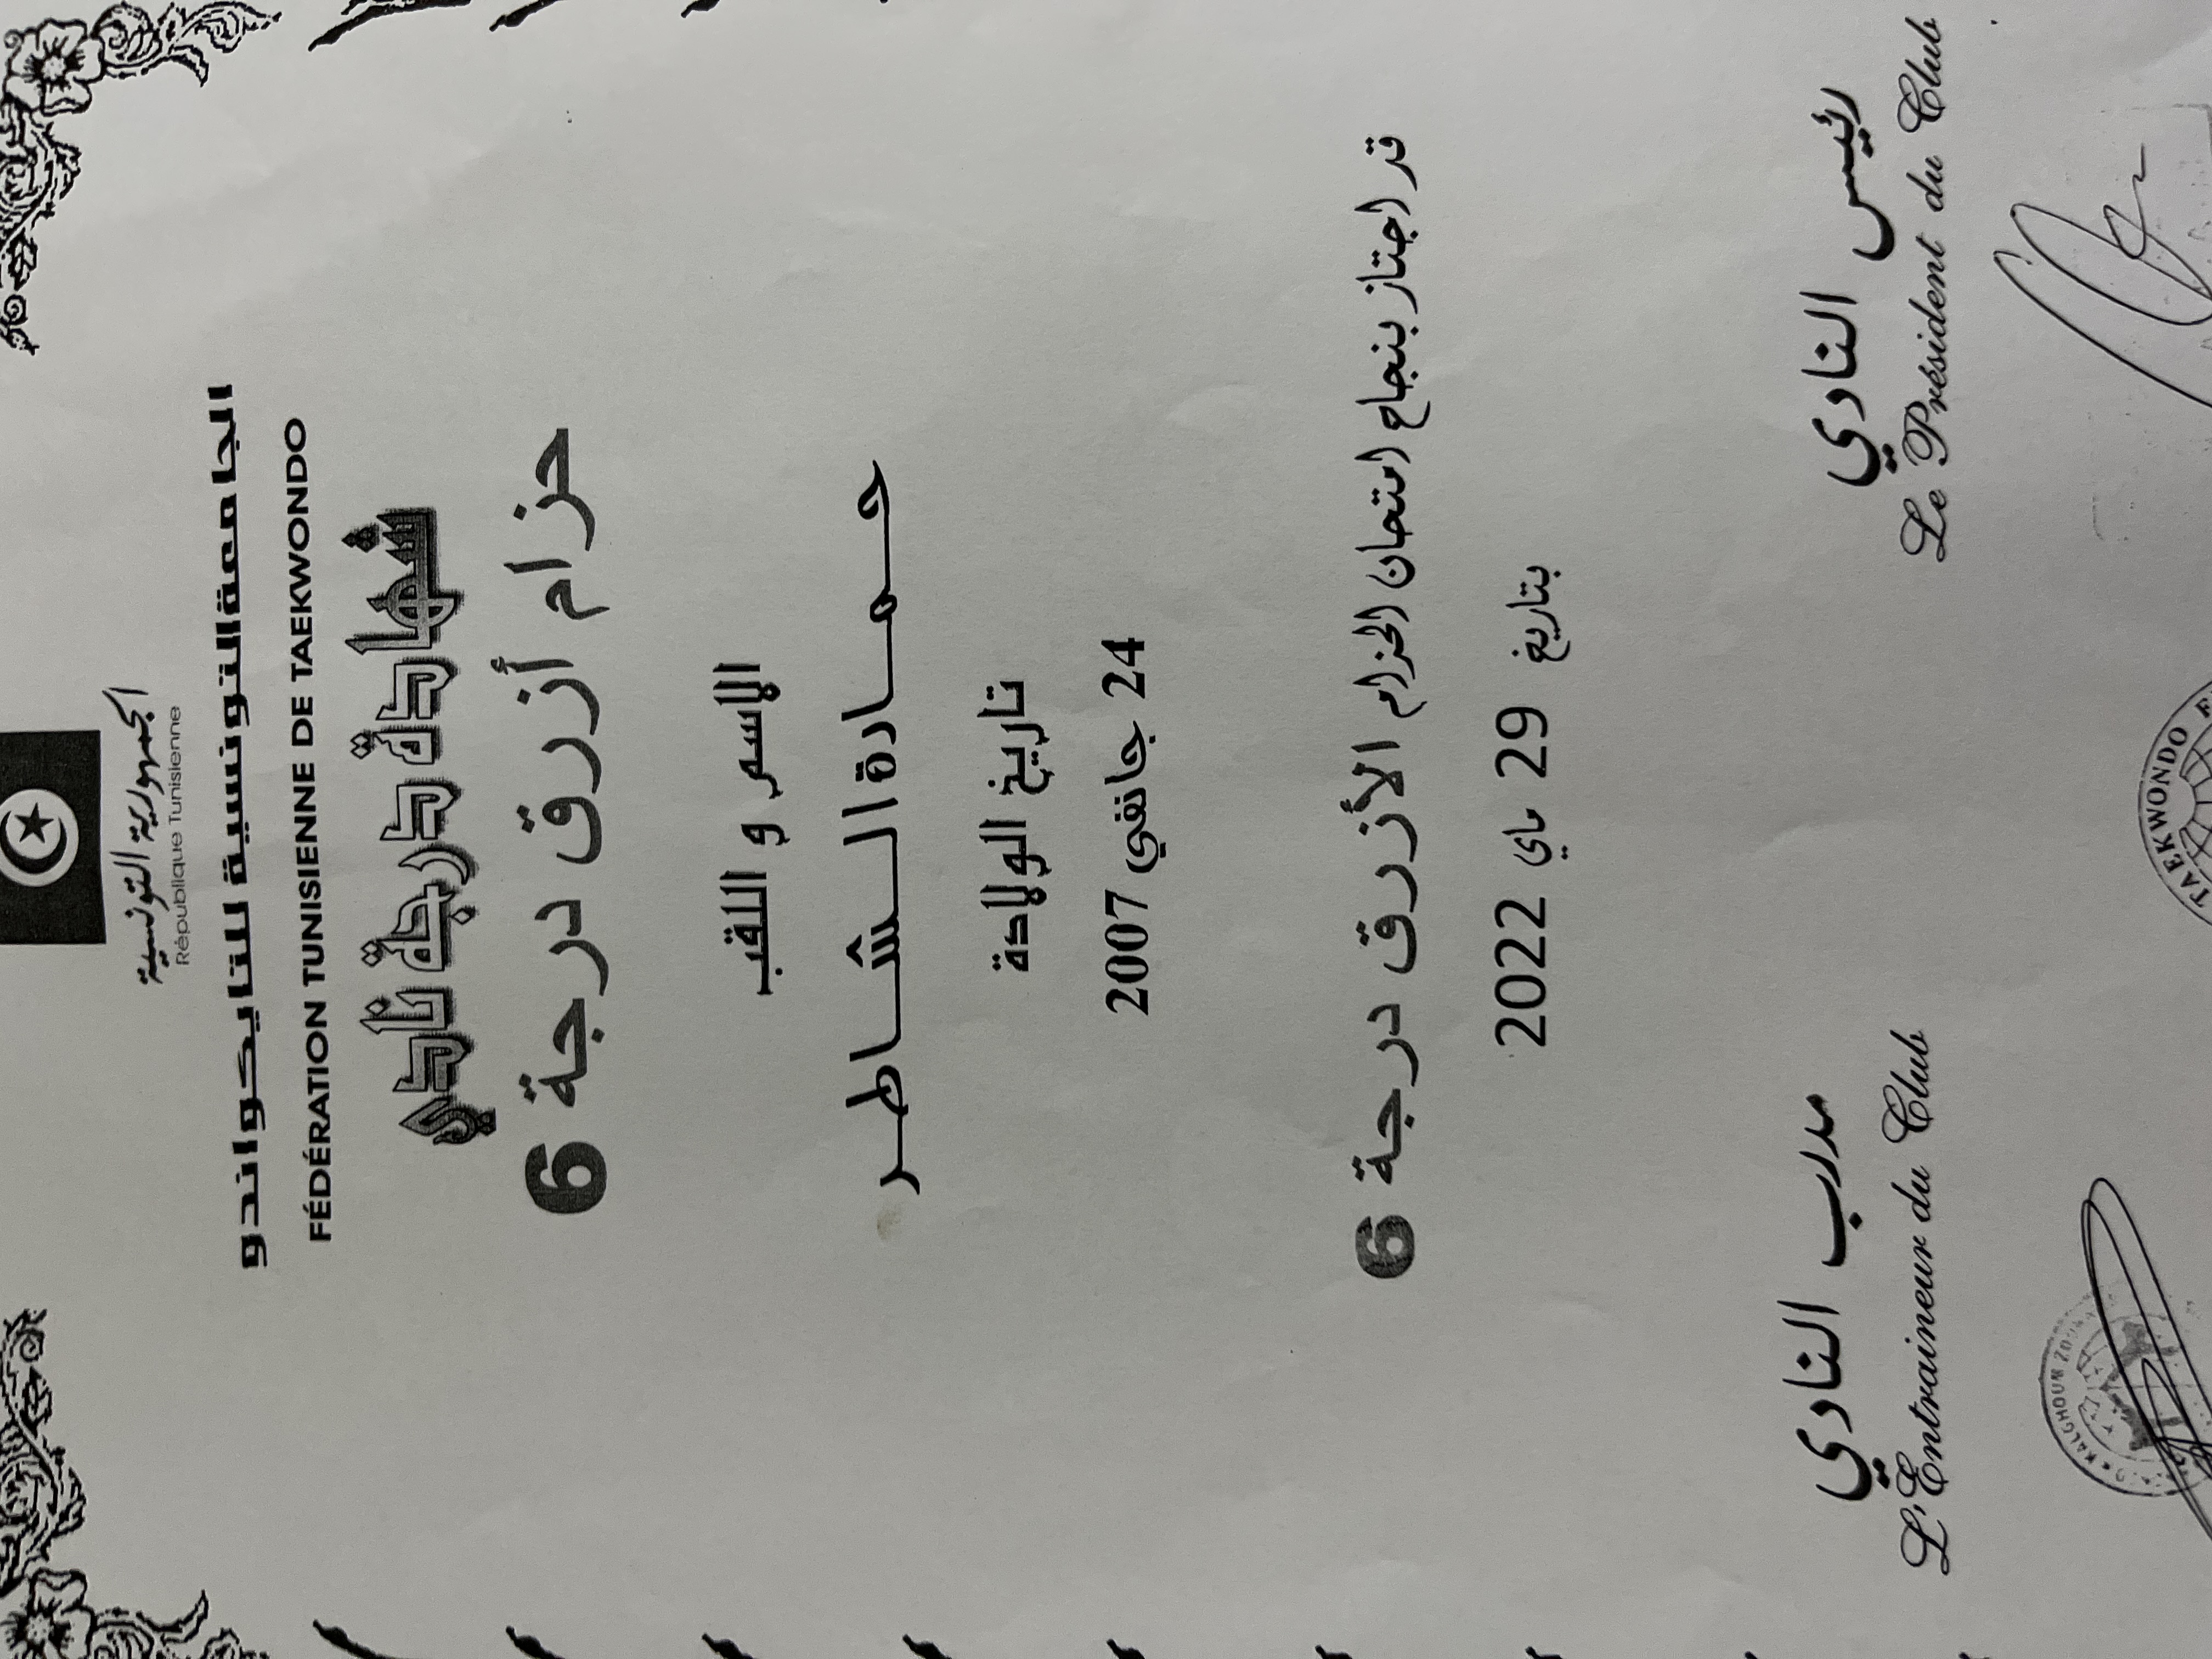 الجمهورية التونسية
République Tunisienne
الجامعة التونسية للتايكواندو
FÉDÉRATION TUNISIENNE DE TAEKWONDO
شهادة درجة نادي
حزام أزرق درجة 6
الاسم و اللقب
حمادة الشاطر
تاريخ الولادة
24 جانفي 2007
قد اجتاز بنجاح امتحان الحزام الأزرق درجة 6
بتاريخ 29 ماي 2022
رئيس النادي
Le Président du Club
مدرب النادي
L'Entraineur du Club
TAEKWONDO
KALGHOUM